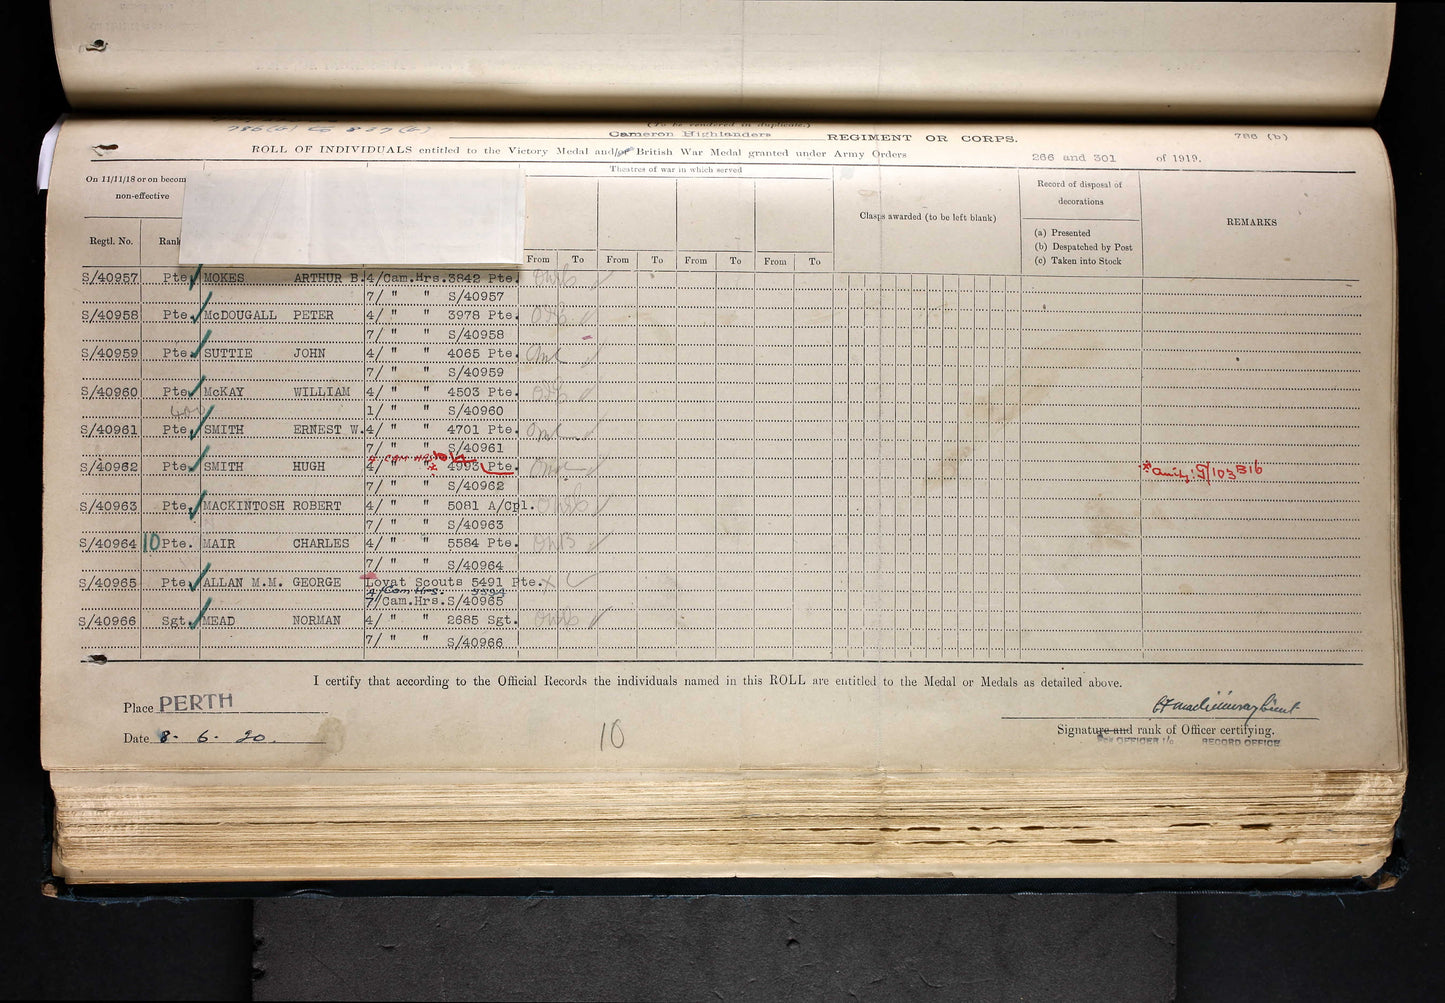 (To be rendered in duplicate.)
Cameron Highlanders REGIMENT OR CORPS. 786 (b)
ROLL OF INDIVIDUALS entitled to the Victory Medal and/or British War Medal granted under Army Orders 266 and 301 of 1919.
On 11/11/18 or on becom
non-effective
Theatres of war in which served
Clasps awarded (to be left blank)
Record of disposal of
decorations
REMARKS
Regtl. No. Rank
(a) Presented
(b) Despatched by Post
(c) Taken into Stock
From To From To From To From To
S/40957 Pte. MOKES ARTHUR B. 4/Cam.Hrs. 3842 Pte.
7/ " " S/40957
S/40958 Pte. McDOUGALL PETER 4/ " " 3978 Pte.
7/ " " S/40958
S/40959 Pte. SUTTIE JOHN 4/ " " 4065 Pte.
7/ " " S/40959
S/40960 Pte. McKAY WILLIAM 4/ " " 4503 Pte.
1/ " " S/40960
S/40961 Pte. SMITH ERNEST W. 4/ " " 4701 Pte.
7/ " " S/40961
S/40962 Pte. SMITH HUGH 4/ " " 4993 Pte.
7/ " " S/40962
S/40963 Pte. MACKINTOSH ROBERT 4/ " " 5081 A/Cpl.
7/ " " S/40963
S/40964 10 Pte. MAIR CHARLES 4/ " " 5584 Pte.
7/ " " S/40964
S/40965 Pte. ALLAN M.M. GEORGE Lovat Scouts 5491 Pte. X
4/Cam Hrs.
7/Cam.Hrs. S/40965
S/40966 Sgt. MEAD NORMAN 4/ " " 2685 Sgt.
7/ " " S/40966
I certify that according to the Official Records the individuals named in this ROLL are entitled to the Medal or Medals as detailed above.
Place PERTH
Date 8-6-20.
10
Signature and rank of Officer certifying.
OFFICER I/c RECORD OFFICE